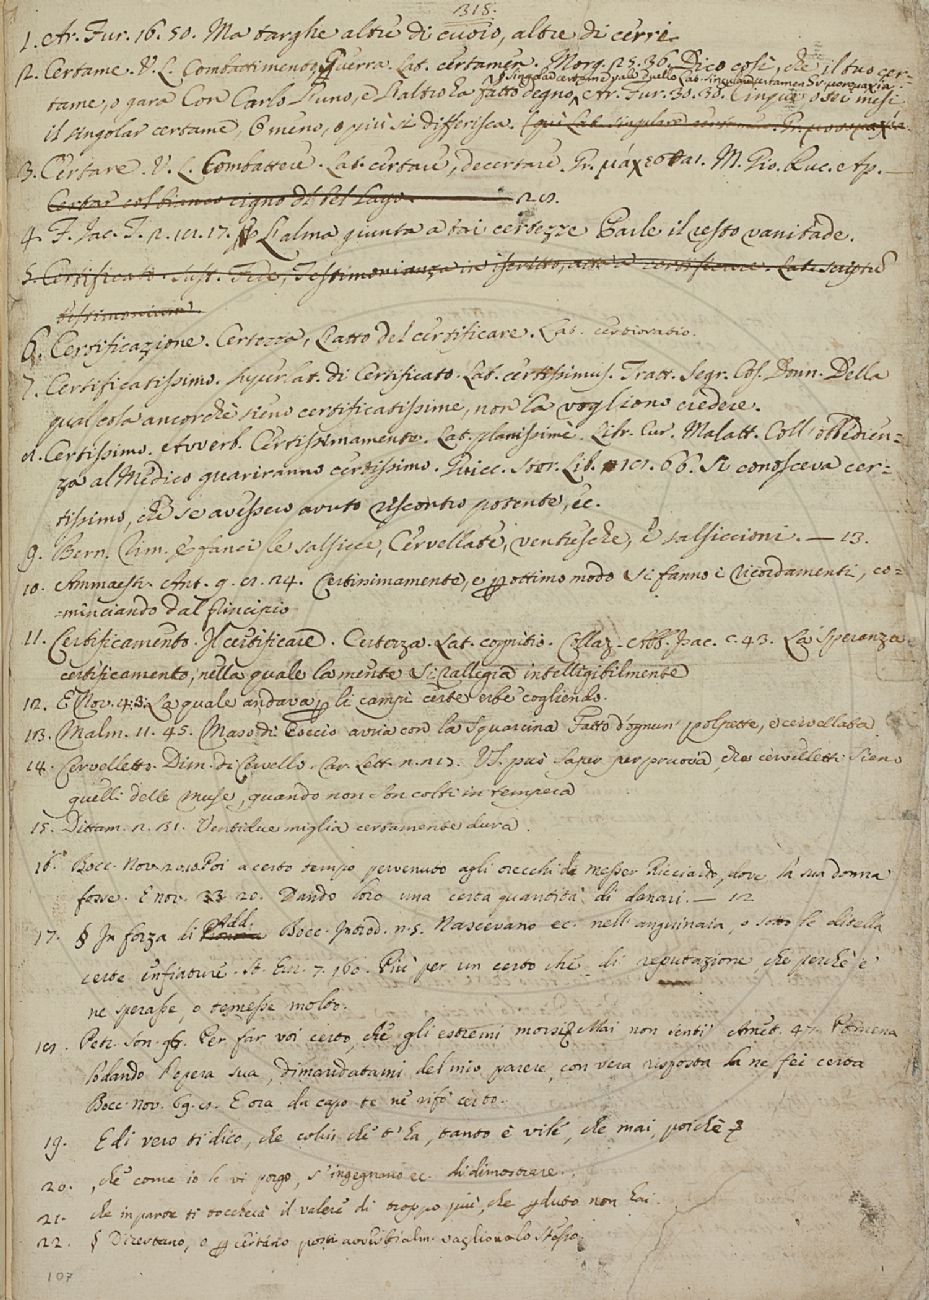 318.
1. Ar. Fur. 16. 50. Ma targhe altre di cuoio, altre di cerri.
2. Certame. V. L. Combattimento, Guerra. Lat. certamen. Morg. 25. 30. Dico così, che il tuo cer-
Singolar certame vale duello Lat. singulare certamen Gr. μονομαχία
tame, o gara Con Carlo Nuno, e l'altro ha fatto degno, Ar. Fur. 30. 30. Cinque, o sei mesi
il singolar certame, O meno, o più si differisca. (qui Lat. singulare certamen Gr. μονομαχία.
3. Certare. V. L. Combattere. Lat. certare, decertare. Gr. μάχεσθαι. M. Gio. Ruc. Ap. —
Certar col bianco cigno del bel Lago. 218.
4. F. Jac. T. 2. 18. 17. L'alma giunta a tai certezze Parle il resto vanitade.
5. Certificato. Sust. Fede, Testimonianza in iscritto, atta a certificare. Lat. scriptum
testimonium.
6. Certificazione. Certezza, L'atto del certificare. Lat. certioratio.
7. Certificatissimo. Superlat. di Certificato. Lat. certissimus. Tratt. Segr. Cos. Donn. Della
qual cosa ancorchè sieno certificatissime, non la vogliono credere.
8. Certissimo. Avverb. Certissimamente. Lat. planissimè. Libr. Cur. Malatt. Coll' obbedien-
za al Medico guariranno certissimo. Guicc. Stor. Lib. 18. 66. Si conosceva cer-
tissimo, che se avessero avuto riscontro potente, ec.
9. Bern. Rim. E fanci le salsicce, Cervellate, ventresche, e salsiccioni. — 13.
10. Ammaestr. Ant. 9. 8. 24. Certinimamente, e per ottimo modo si fanno i ricordamenti, co-
minciando dal principio
11. Certificamento. Il certificare. Certezza. Lat. cognitio. Collaz. Abb. Isac. c. 43. La speranza
certificamento, nella quale la mente si rallegra intelligibilmente
12. E Nov. 43. La quale andava per li campi certe erbe cogliendo.
13. Malm. 11. 45. Maso di Coccio avria con la Squarcina Fatto d'ognun' polpette, e cervellata
14. Cervelletto. Dim. di Cervello. Car. Lett. V. S. può saper per pruova, che cervelletti sieno
quelli delle Muse, quando non son colti in tempera
15. Dittam. 2. 31. Ventidue miglia certamente dura.
16. Bocc. Nov. 20. 10. Poi a certo tempo pervenuto agli orecchi di messer Ricciardo, dove la sua donna
fosse. E nov. 33. 20. Dando loro una certa quantità di danari. — 12
17. § In forza di Add. Bocc. Introd. n. 5. Nascevano ec. nell' anguinaia, o sotto le ditella
certe enfiature. St. Eur. 7. 160. Più per un certo chè di reputazione, che perchè e'
ne sperasse, o temesse molto.
18. Petr. Son. 96. Per far voi certo, che gli estremi morsi Mai non sentì Amet. 47. Pomena
lodando l'opera sua, dimandatami del mio parere, con vera risposta la ne fei certa
Bocc. Nov. 69. 8. E ora da capo te ne rifò certo.
19. E di vero ti dico, che colui che t' ha, tanto è vile, che mai, poichè
20. che come io le vi porgo, s' ingegnano ec. di dimostrare.
21. che in parte ti toccherà il valere di troppo più, che perduto non hai.
22. § Di certano, o per certano posti avverbialm. vagliono lo stesso.
107